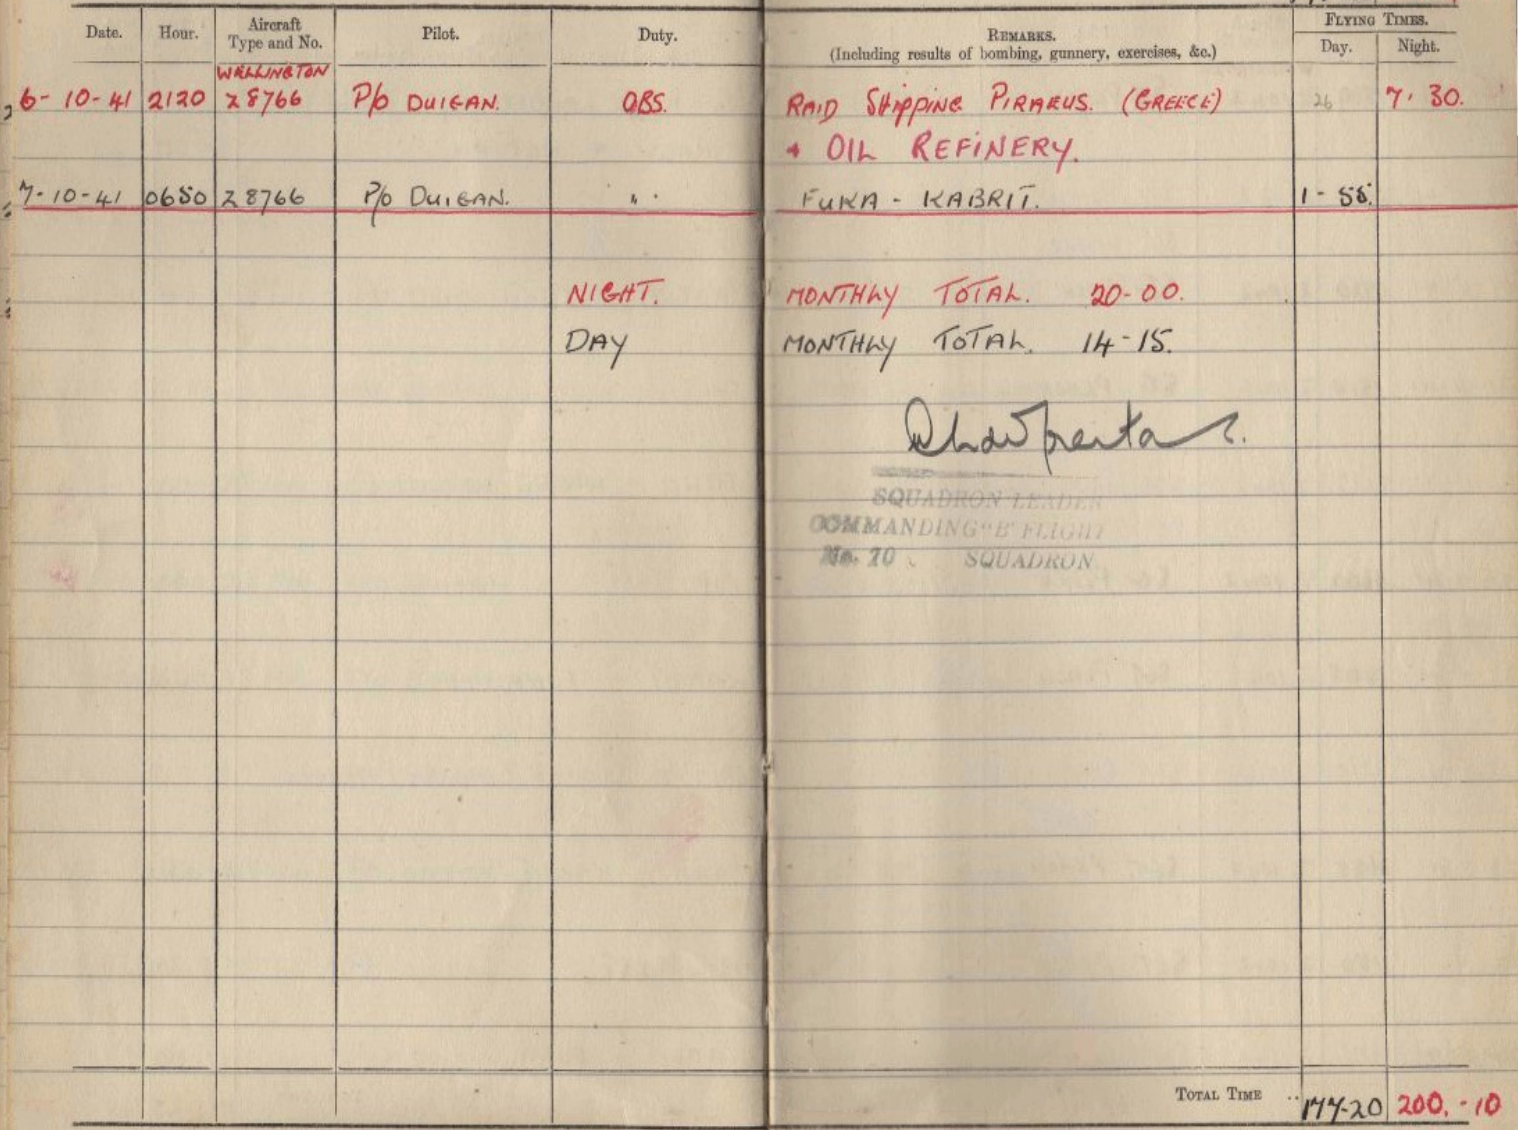 Date. Hour. Aircraft Type and No. Pilot. Duty. REMARKS. (Including results of bombing, gunnery, exercises, &c.) FLYING TIMES. Day. Night.
WELLINGTON
6-10-41 2120 Z8766 P/O DUIGAN. OBS. RAID SHIPPING PIRAEUS. (GREECE) 26 7.30.
+ OIL REFINERY.
7-10-41 0650 Z8766 P/O DUIGAN. " FUKA - KABRIT. 1-55.
NIGHT. MONTHLY TOTAL. 20-00.
DAY MONTHLY TOTAL. 14-15.
SQUADRON LEADER
COMMANDING "B" FLIGHT
No. 70 SQUADRON
TOTAL TIME .. 177-20 200.-10